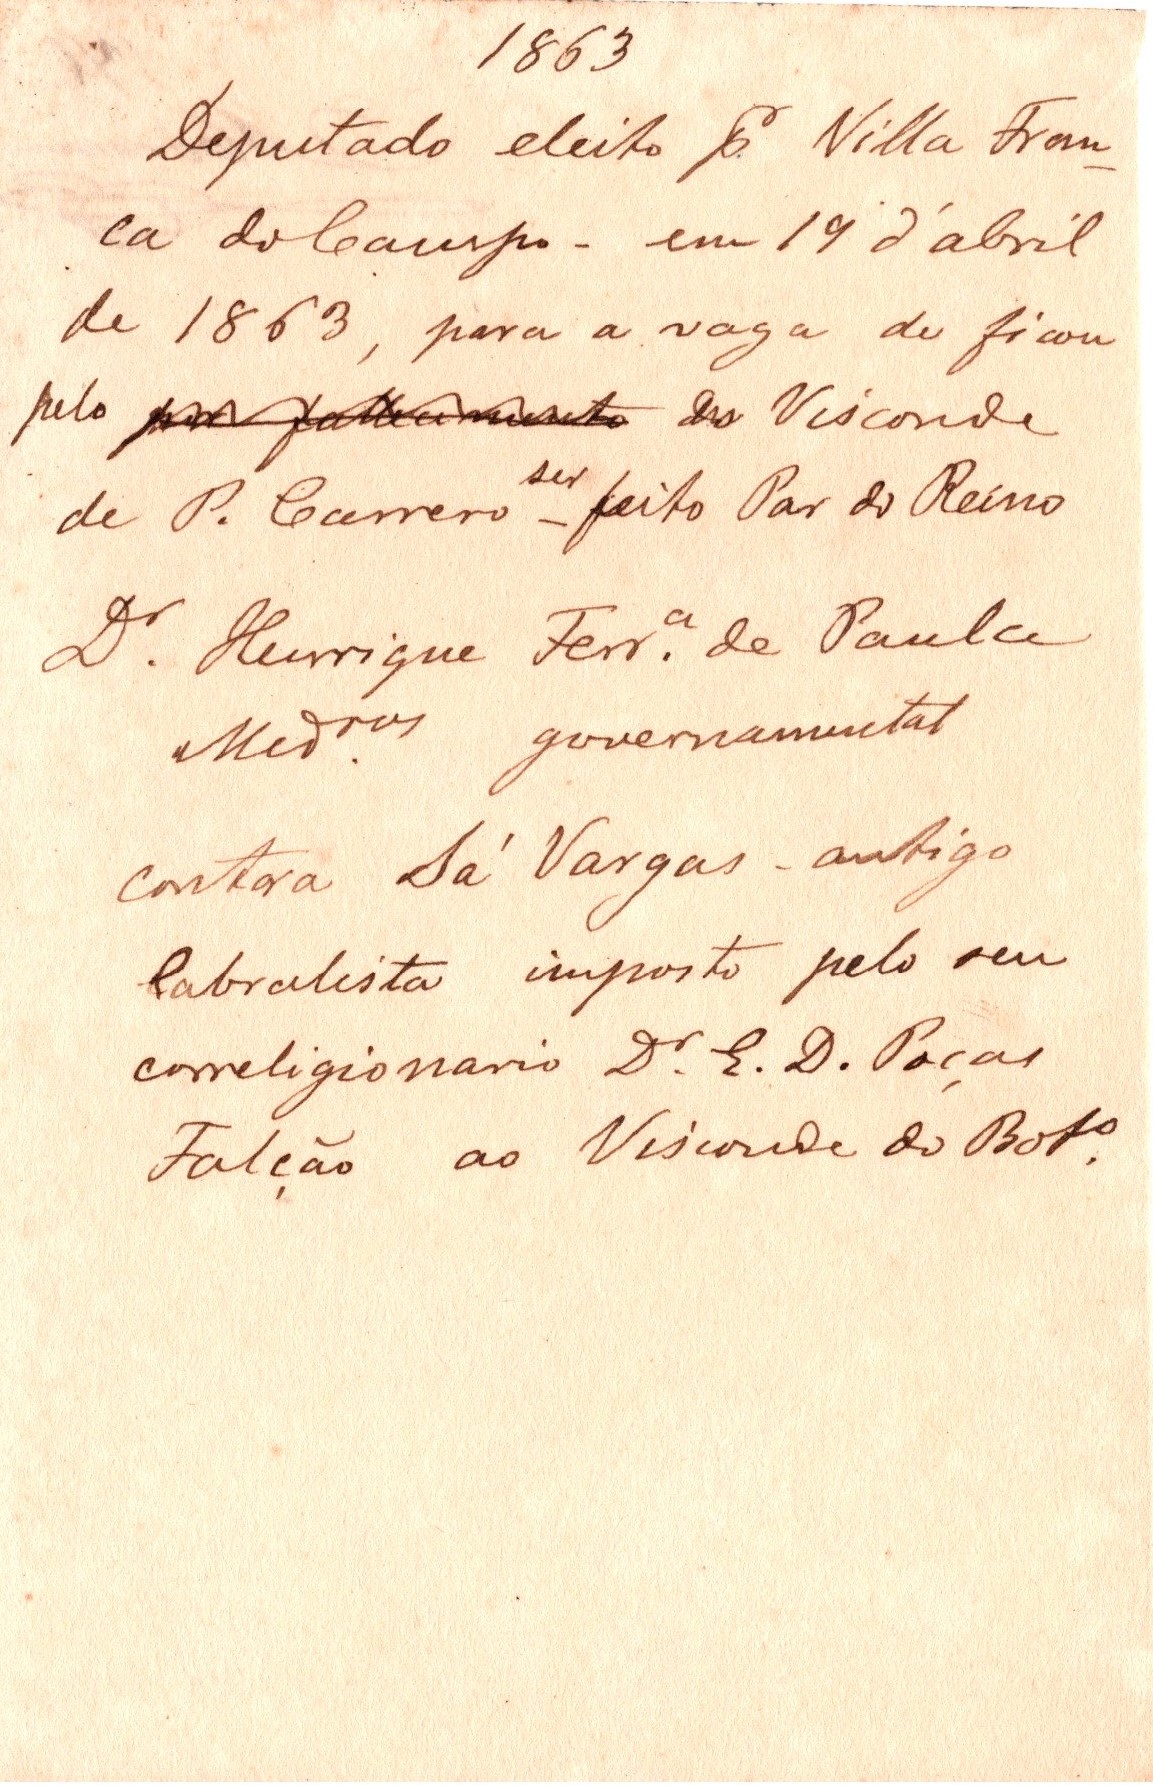 1863
Deputado eleito pr. Villa Fran-
ca do Campo - em 19 d'abril
de 1863, para a vaga de ficou
pelo por fallecimento do Visconde
de P. Carrero ser - feito Par do Reino
Dr. Henrique Ferr.a de Paula
Medros. governamental
contra Sá Vargas - antigo
Cabralista imposto pelo seu
correligionario Dr. E. D. Poças
Falcção ao Visconde do Boto.